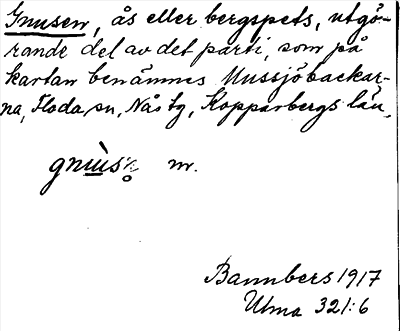 Gnusen, ås eller bergspets, utgö-
rande del av det parti, som på
kartan benämnes Mussjöbackar-
na, Floda sn, Nås tg, Kopparbergs län,
m.
Bannbers 1917
Ulma 321:6